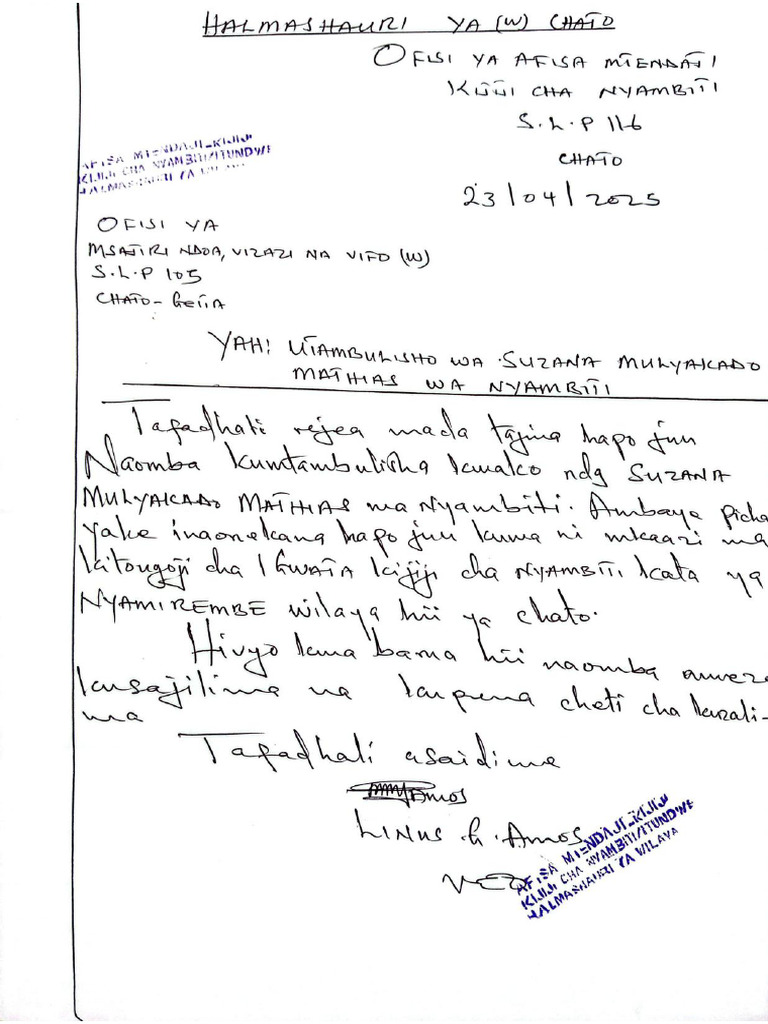 HALMASHAURI YA (W) CHATO
OFISI YA AFISA MTENDAJI
KIJIJI CHA NYAMBITI
S.L.P 116
CHATO
23/04/2025
AFISA MTENDAJI-KIJIJI
KIJIJI CHA NYAMBITI/ITUNDWE
HALMASHAURI YA WILAYA
OFISI YA
MSAJIRI NDOA, VIZAZI NA VIFO (W)
S.L.P 105
CHATO-GEITA
YAH: UTAMBULISHO WA SUZANA MULYAKADO
MATHIAS WA NYAMBITI
Tafadhali rejea mada tajwa hapo juu
Naomba kumtambulisha kwako ndg SUZANA
MULYAKADO MATHIAS wa Nyambiti. Ambaye picha
yake inaonekana hapo juu kuwa ni mkaazi wa
kitongoji cha IGWATA kijiji cha NYAMBITI kata ya
NYAMIREMBE wilaya hii ya chato.
Hivyo kwa barua hii naomba aweze
kusajiliwa na kupewa cheti cha kuzali-
wa
Tafadhali asaidiwe
Amos
LINUS G. Amos
VEO
AFISA MTENDAJI-KIJIJI
KIJIJI CHA NYAMBITI/ITUNDWE
HALMASHAURI YA WILAYA